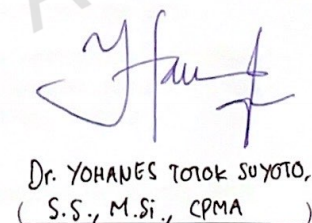 Dr. YOHANES TOTOK SUYOTO,
( S.S., M.Si., CPMA